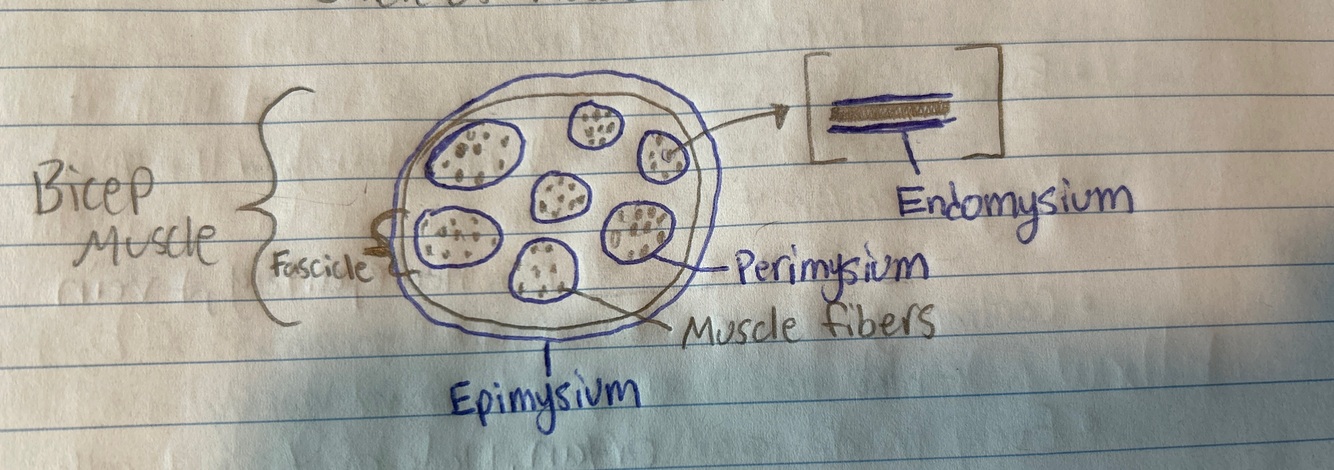 Bicep
Muscle
Fascicle
Endomysium
Perimysium
Muscle fibers
Epimysium